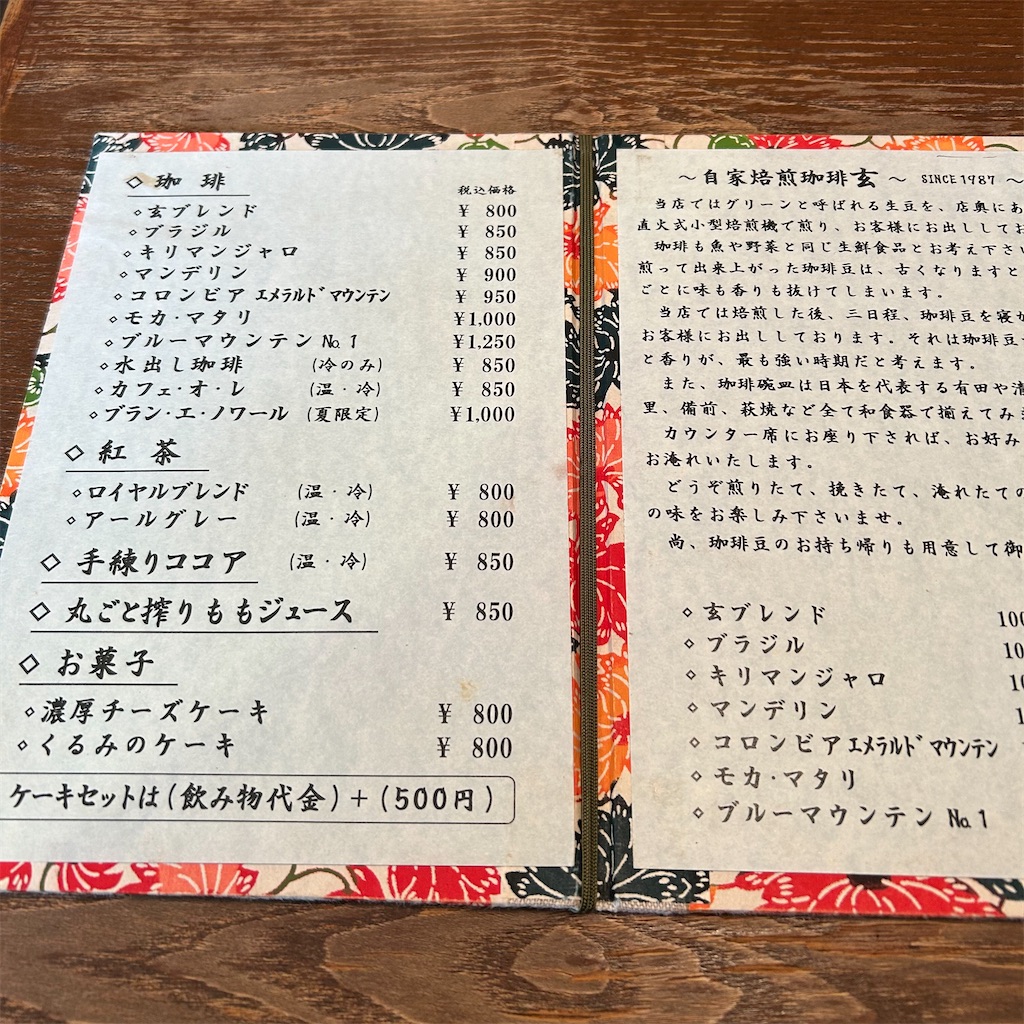 ◇ 珈琲
税込価格
◇玄ブレンド ¥ 800
◇ブラジル ¥ 850
◇キリマンジャロ ¥ 850
◇マンデリン ¥ 900
◇コロンビア エメラルドマウンテン ¥ 950
◇モカ・マタリ ¥1,000
◇ブルーマウンテン№1 ¥1,250
◇水出し珈琲 (冷のみ) ¥ 850
◇カフェ・オ・レ (温・冷) ¥ 850
◇ブラン・エ・ノワール (夏限定) ¥1,000
◇ 紅茶
◇ロイヤルブレンド (温・冷) ¥ 800
◇アールグレー (温・冷) ¥ 800
◇ 手練りココア (温・冷) ¥ 850
◇ 丸ごと搾りももジュース ¥ 850
◇ お菓子
◇濃厚チーズケーキ ¥ 800
◇くるみのケーキ ¥ 800
ケーキセットは(飲み物代金)+(500円)
～自家焙煎珈琲玄～ SINCE1987 ～
当店ではグリーンと呼ばれる生豆を、店奥にあ
直火式小型焙煎機で煎り、お客様にお出ししてお
珈琲も魚や野菜と同じ生鮮食品とお考え下さい
煎って出来上がった珈琲豆は、古くなりますと
ごとに味も香りも抜けてしまいます。
当店では焙煎した後、三日程、珈琲豆を寝か
お客様にお出ししております。それは珈琲豆
と香りが、最も強い時期だと考えます。
また、珈琲碗皿は日本を代表する有田や清
里、備前、萩焼など全て和食器で揃えてみま
カウンター席にお座り下されば、お好み
お淹れいたします。
どうぞ煎りたて、挽きたて、淹れたての
の味をお楽しみ下さいませ。
尚、珈琲豆のお持ち帰りも用意して御
◇ 玄ブレンド 100
◇ ブラジル 10
◇ キリマンジャロ 10
◇ マンデリン 1
◇ コロンビアエメラルドマウンテン
◇ モカ・マタリ
◇ ブルーマウンテン №1